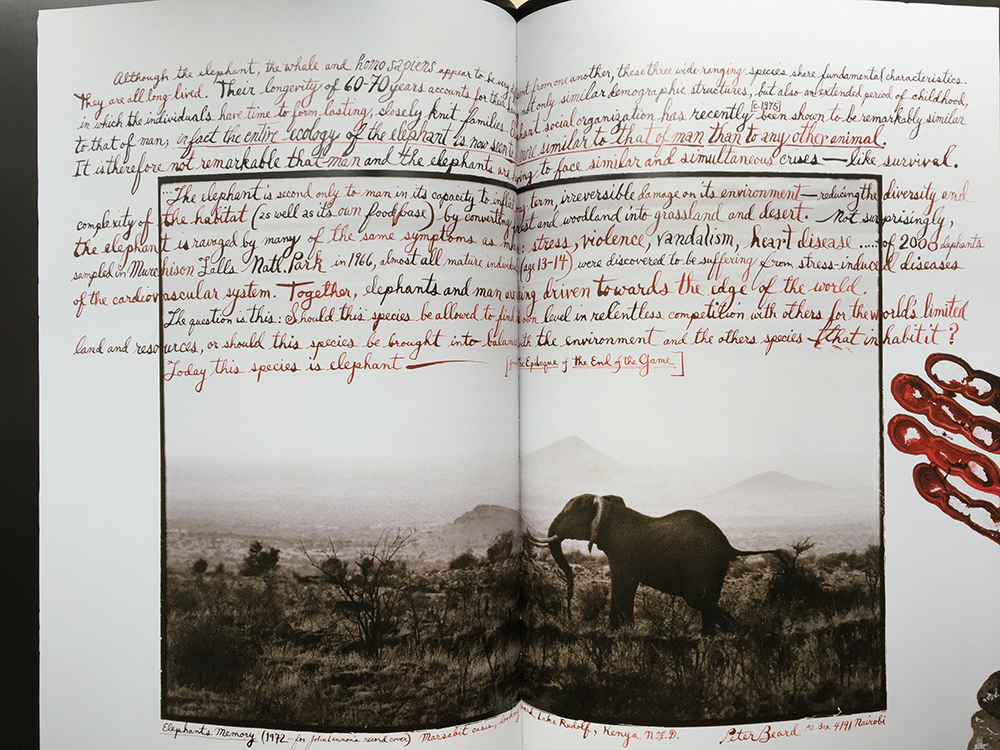 Although the elephant, the whale and homo sapiens appear to be very different from one another, these three wide-ranging species share fundamental characteristics.
They are all long-lived. Their longevity of 60-70 years accounts for their not only similar demographic structures, but also an extended period of childhood,
in which the individuals have time to form lasting, closely knit families. Elephant social organization has recently [c.1975] been shown to be remarkably similar
to that of man; in fact the entire ecology of the elephant is now seen to be more similar to that of man than to any other animal.
It is therefore not remarkable that man and the elephants are having to face similar and simultaneous crises — like survival.
The elephant is second only to man in its capacity to inflict long term, irreversible damage on its environment — reducing the diversity and
complexity of the habitat (as well as its own food base) by converting forest and woodland into grassland and desert. Not surprisingly,
the elephant is ravaged by many of the same symptoms as man: stress, violence, vandalism, heart disease ..... of 2000 elephants
sampled in Murchison Falls Natl. Park in 1966, almost all mature individuals (age 13-14) were discovered to be suffering from stress-induced diseases
of the cardiovascular system. Together, elephants and man are being driven towards the edge of the world.
The question is this: Should this species be allowed to find its own level in relentless competition with others for the world's limited
land and resources, or should this species be brought into balance with the environment and the others species that inhabit it?
Today this species is elephant —
[from the Epilogue of The End of the Game]
Elephant's Memory (1972 ... for John Lennon's record cover) Marsabit oasis, looking toward Lake Rudolf, Kenya N.F.D. Peter Beard P.O. Box 4191 Nairobi